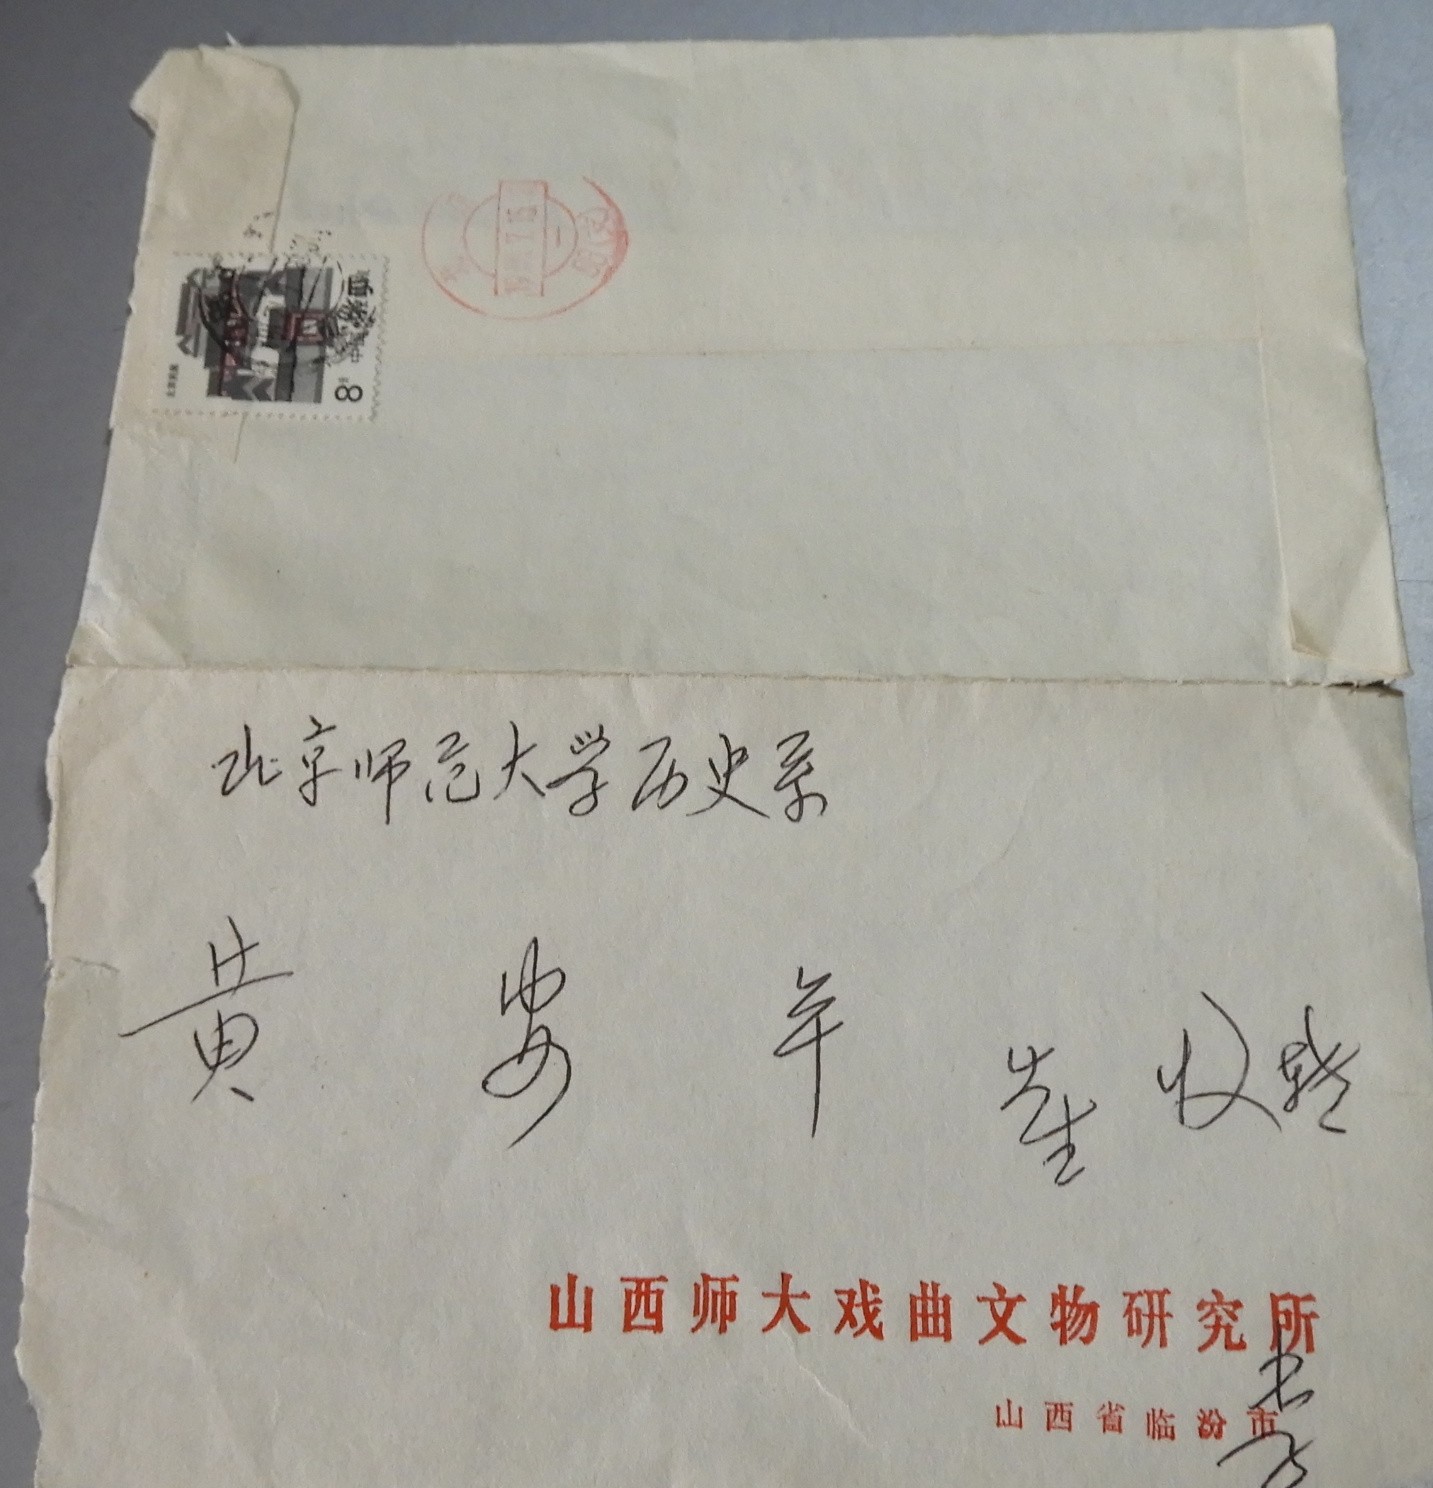 8
北京师范大学历史系
黄安年先生收转
山西师大戏曲文物研究所
山西省临汾市